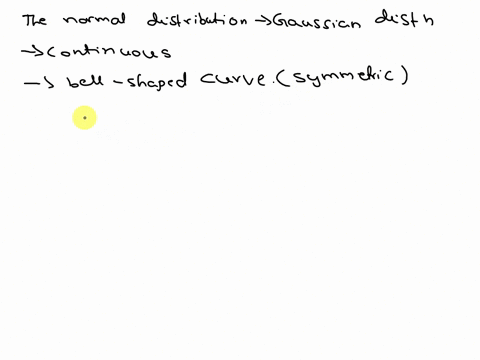 The normal distribution →Gaussian distn
→continuous
→ bell-shaped curve.(symmetric)